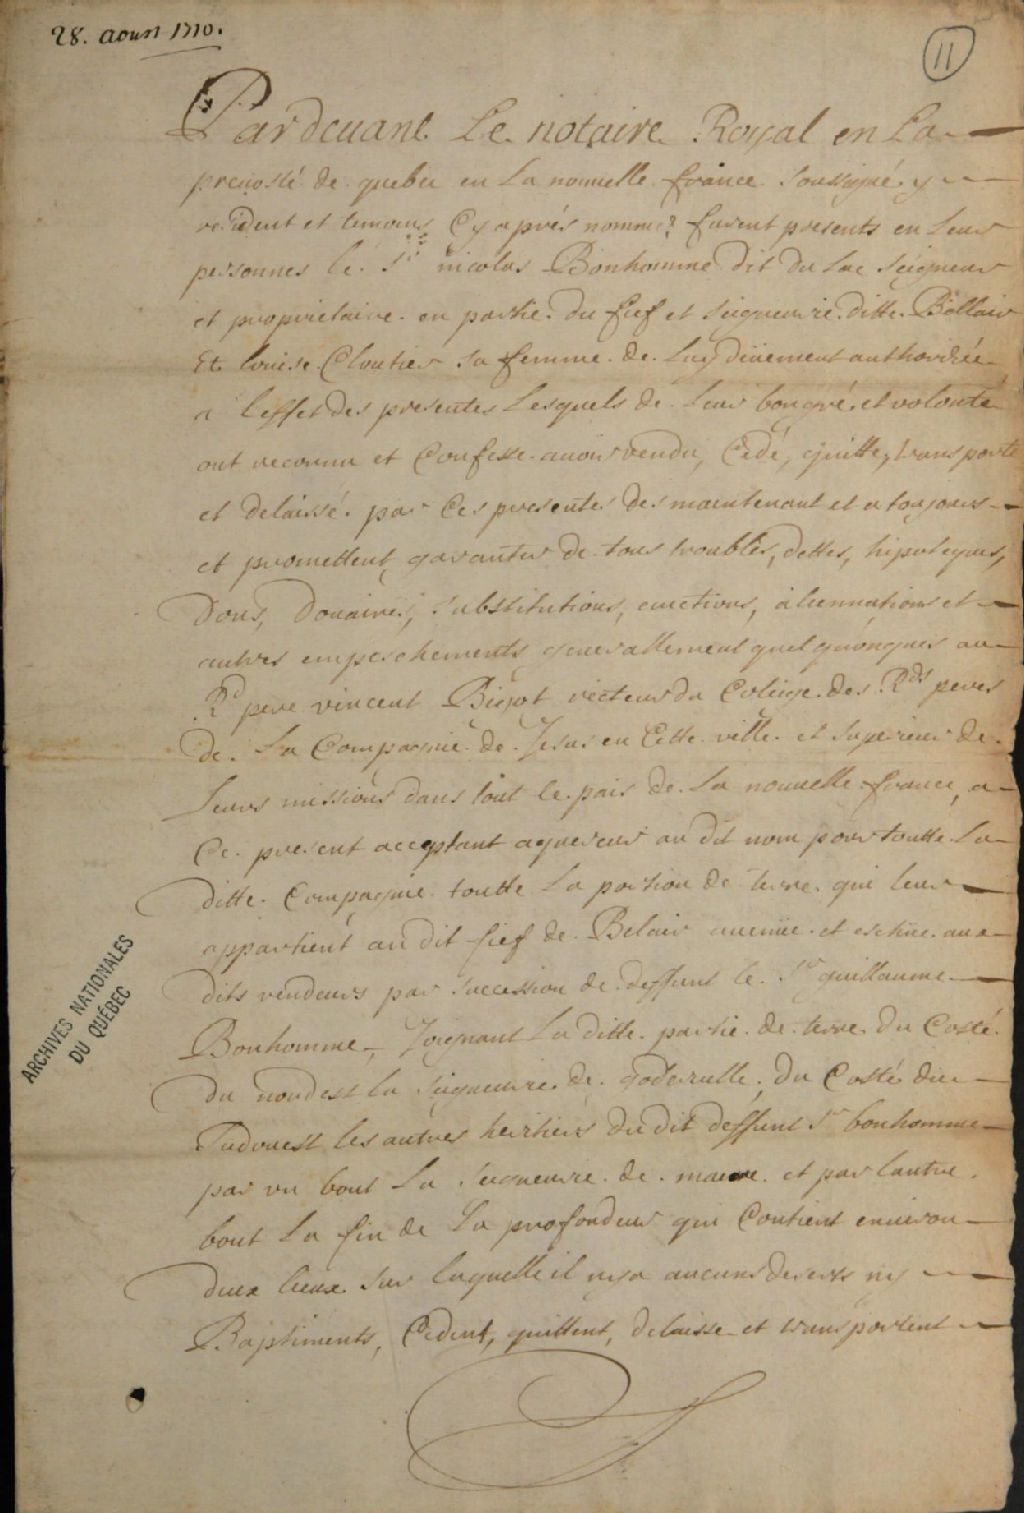 28. aoust 1710.
11
Pardevant Le notaire Royal en La
prevosté de quebec en La nouvelle france soussigné y
resident et temoins Cy aprés nommez furent presents en Leurs
personnes le Sr nicolas Bonhomme dit du Lac Seigneur
et proprietaire en partie du fief et Seigneurie ditte Bellair
Et Louise Cloutier sa femme de Luy düement authorizée
a Leffet des presentes Lesquels de Leur bongré et volonté
ont reconnu et Confessé avoir vendu, Cedé, quitté, transporté
et delaissé par Ces presentes des maintenant et a toujours
et promettent garantir de tous troubles, dettes, hipoteques,
Dons, Douaires, Substitutions, evictions, aliennations et
autres empeschements generallement quelquonques au
Rd pere vincent Bigot recteur du Colége des Rds peres
de La Compagnie de Jesus en Cette ville et Superieur de
Leurs missions dans tout le païs de La nouvelle france, a
Ce present acceptant aquereur au dit nom pour toutte La
ditte Compagnie toutte La portion de terre qui leur
appartient au dit fief de Belair avenüe et eschüe aux
dits vendeurs par Succession de deffunt le Sr guillaume
Bonhomme, Joignant La ditte partie de terre du Costé
du nordest la Seigneurie de godarville, du Costé du
Sudouest les autres heritiers du dit deffunt Sr bonhomme
par un bout La Seigneurie de maure et par lautre
bout La fin de La profondeur qui Contient environ
deux lieux Sur laquelle il ny a aucuns deserts ny
Baptiments, Cedent, quittent, delaisse et transportent
ARCHIVES NATIONALES
DU QUÉBEC